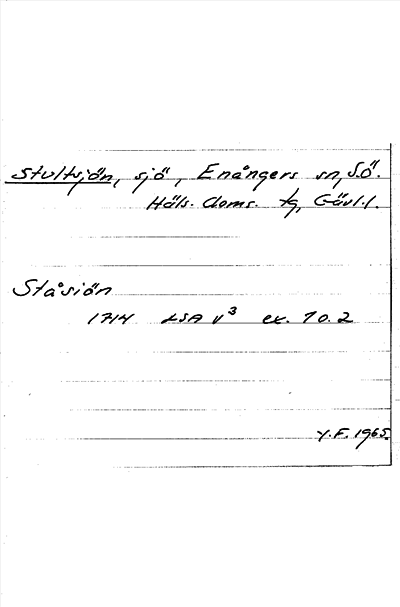 Stultsjön, sjö, Enångers sn, S.Ö.
Häls. doms. tg, Gävl.l.
Ståsiön
1714 LSA v³ ex. 10.2
Y.F. 1965.